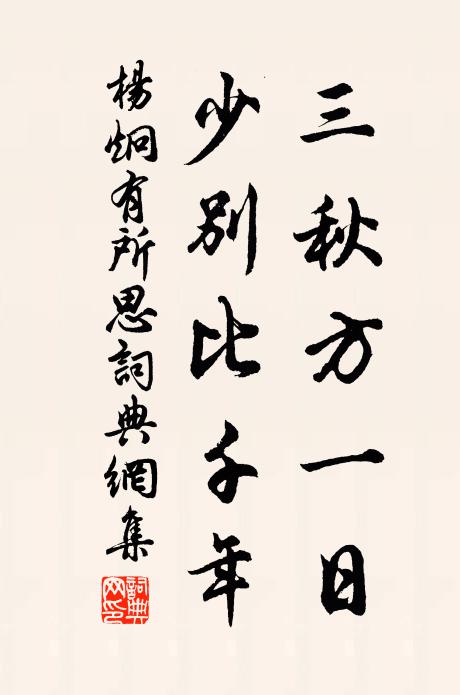 三秋方一日
少別比千年
楊炯有所思詞典網集
詞典
网印